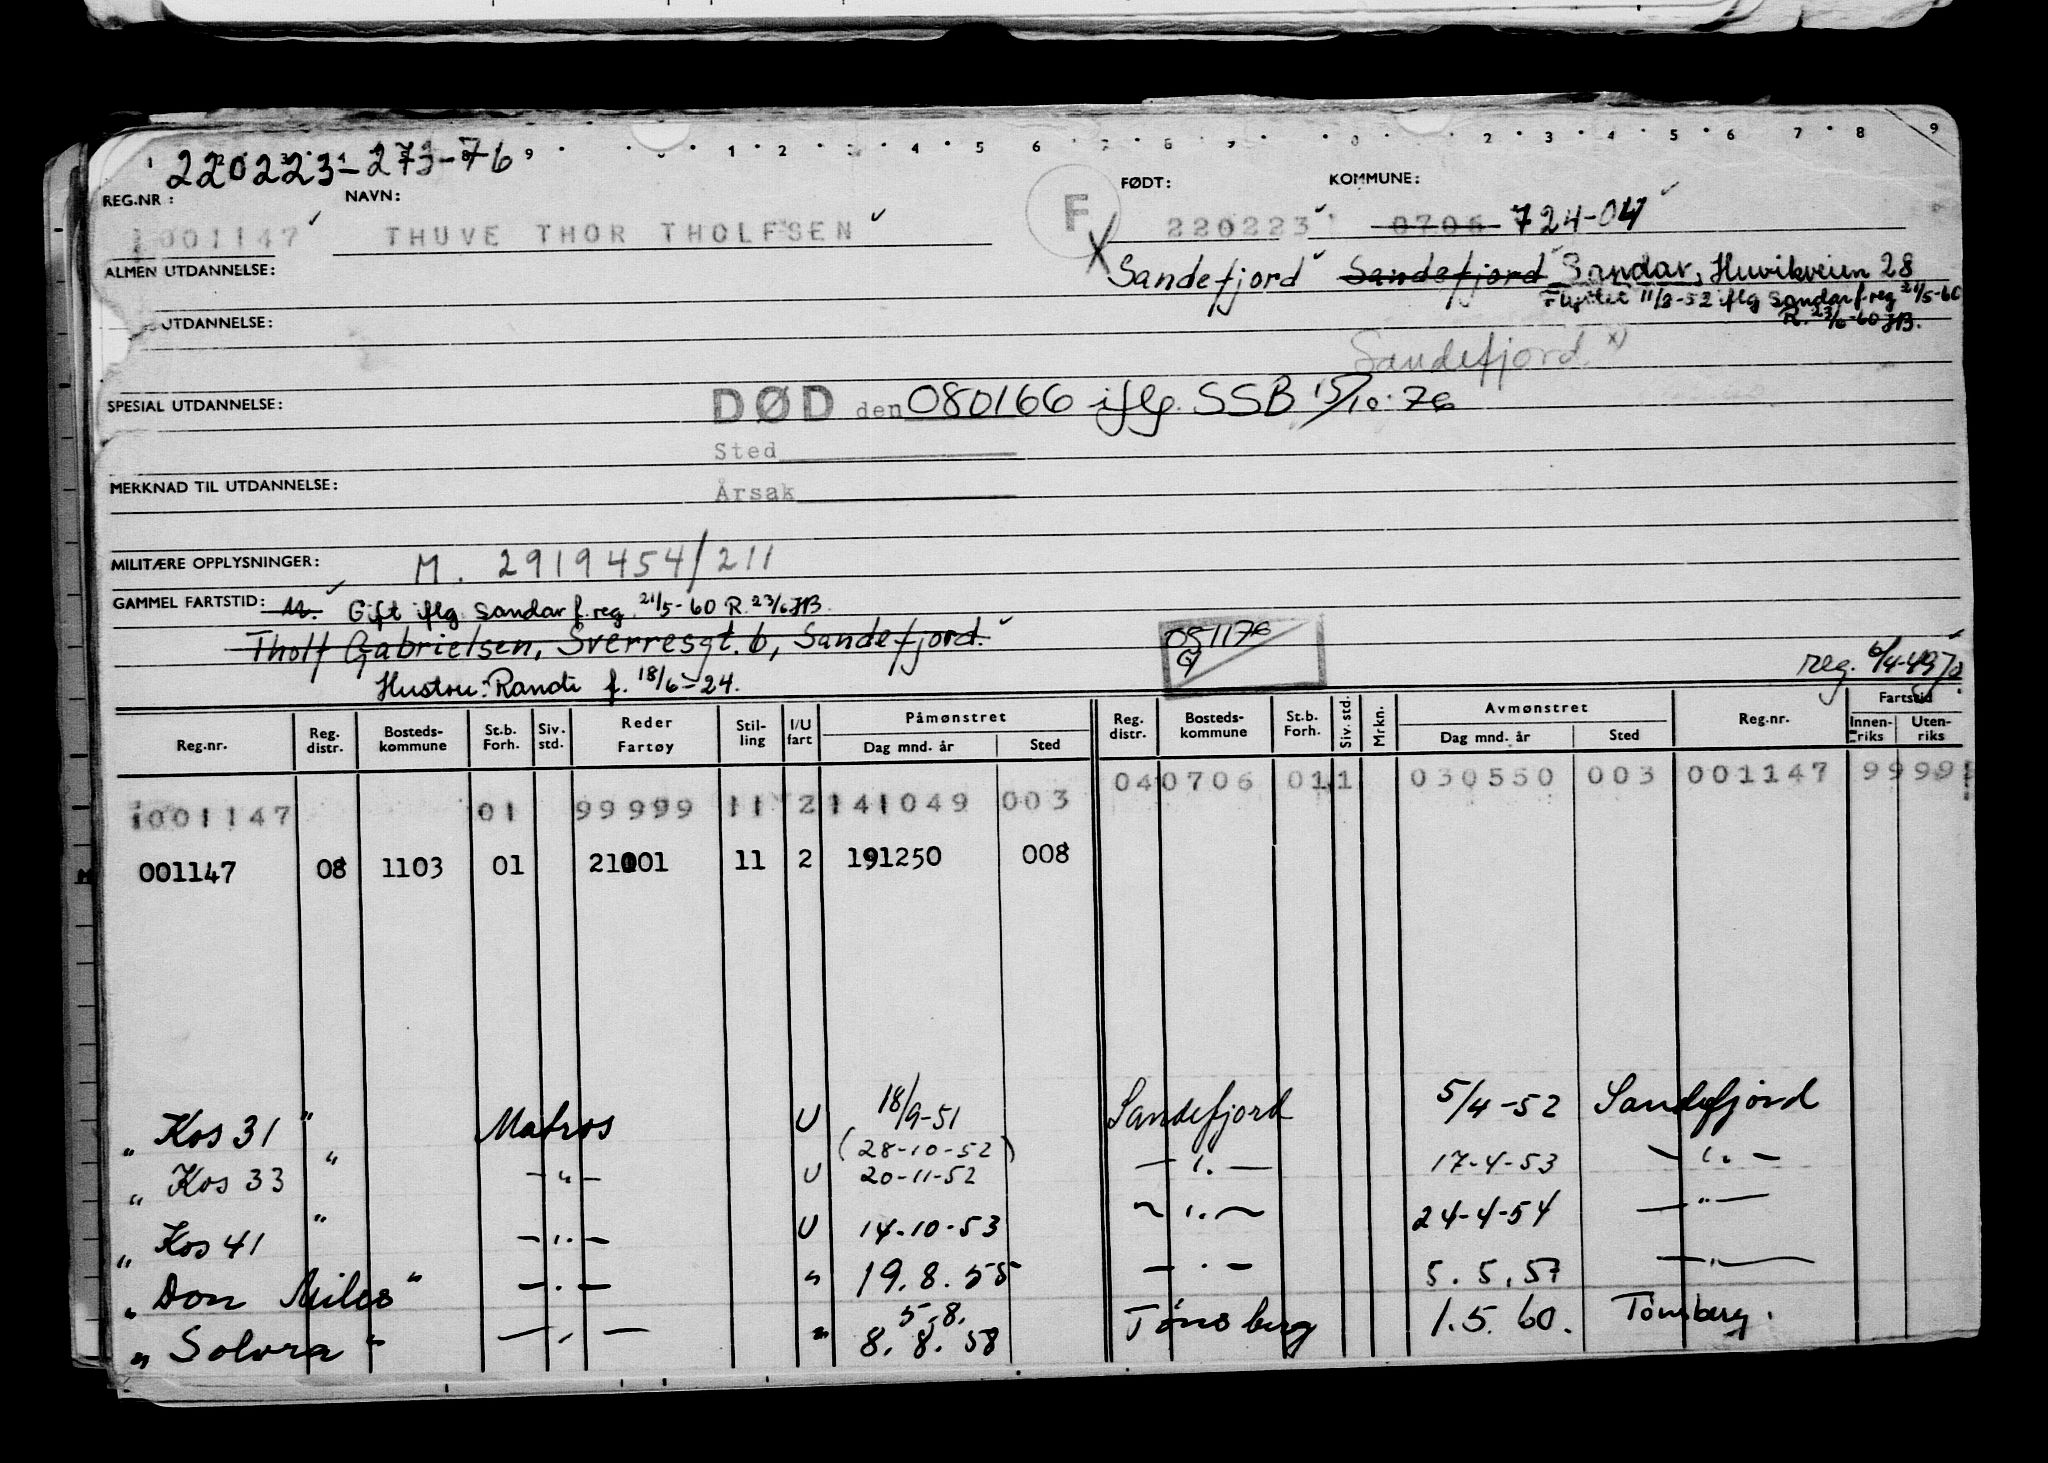 220223-273-76
REG.NR: NAVN: FØDT: KOMMUNE:
1001147 THUVE THOR THOLFSEN F 220223 0706 724-04
ALMEN UTDANNELSE: X Sandefjord Sandefjord Sandar, Huvikveien 28
Flyttet 11/3-52 iflg Sandar f.reg 21/5-60
UTDANNELSE: R. 23/6-60 HB.
Sandefjord x)
SPESIAL UTDANNELSE: DØD den 080166 iflg. SSB 15/10-76
Sted
MERKNAD TIL UTDANNELSE: Årsak
MILITÆRE OPPLYSNINGER: M. 2919454/211
GAMMEL FARTSTID: Gift iflg Sandar f.reg. 21/5-60 R. 23/6 HB.
Tholf Gabrielsen, Sverresgt. 6, Sandefjord. 051176
Hustru: Randi f. 18/6-24. reg. 6/4-49
Reg.nr. Reg. distr. Bosteds-kommune St.b. Forh. Siv. std. Reder Fartøy Stil-ling I/U fart Påmønstret Dag mnd. år Sted Reg. distr. Bosteds-kommune St.b. Forh. Siv. std. Mrkn. Avmønstret Dag mnd. år Sted Reg.nr. Fartstid Innen-riks Uten-riks
1001147 01 99999 11 2 141049 003 04 0706 01 1 030550 003 001147 9999
001147 08 1103 01 21001 11 2 191250 008
" Kos 31 " Matros U 18/9-51 Sandefjord 5/4-52 Sandefjord
(28-10-52)
" Kos 33 " -"- U 20-11-52 -"- 17-4-53 -"-
" Kos 41 " -"- U 14-10-53 -"- 24-4-54 -"-
" Don Miles " -"- " 19.8.55 -"- 5.5.57 -"-
5.8.
" Solvra " -"- " 8.8.58 Tønsberg 1.5.60. Tønsberg.